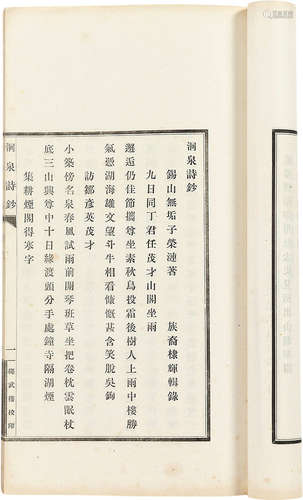 洞泉詩鈔
錫山無垢子榮漣著　族裔棣輝輯錄
九日同丁君任茂才山閣坐雨
邂逅仍佳節攜尊坐素秋鳥投霜後樹人上雨中樓勝
氣憑湖海雄文望斗牛相看慷慨甚含笑脫吳鉤
訪鄒彥英茂才
小築傍名泉春風試雨前開琴班草坐把卷枕雲眠杖
底三山興尊中十日緣渡頭分手處鐘寺隔湖煙
集耕煙閣得寒字
洞泉詩鈔
一